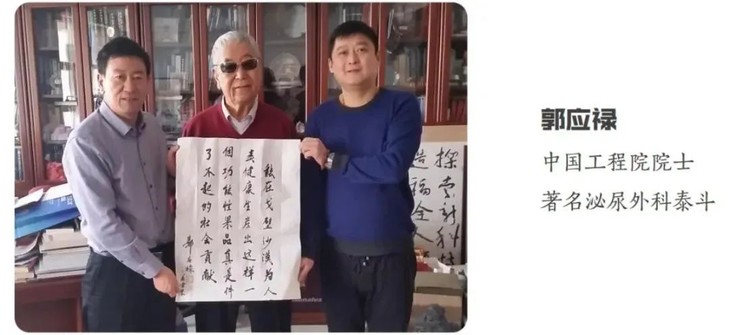 能在戈壁沙漠为人
类健康生产出这样一
个功能性果品真是件
了不起的社会贡献
郭应禄
探索新科
造福全人
郭应禄
中国工程院院士
著名泌尿外科泰斗